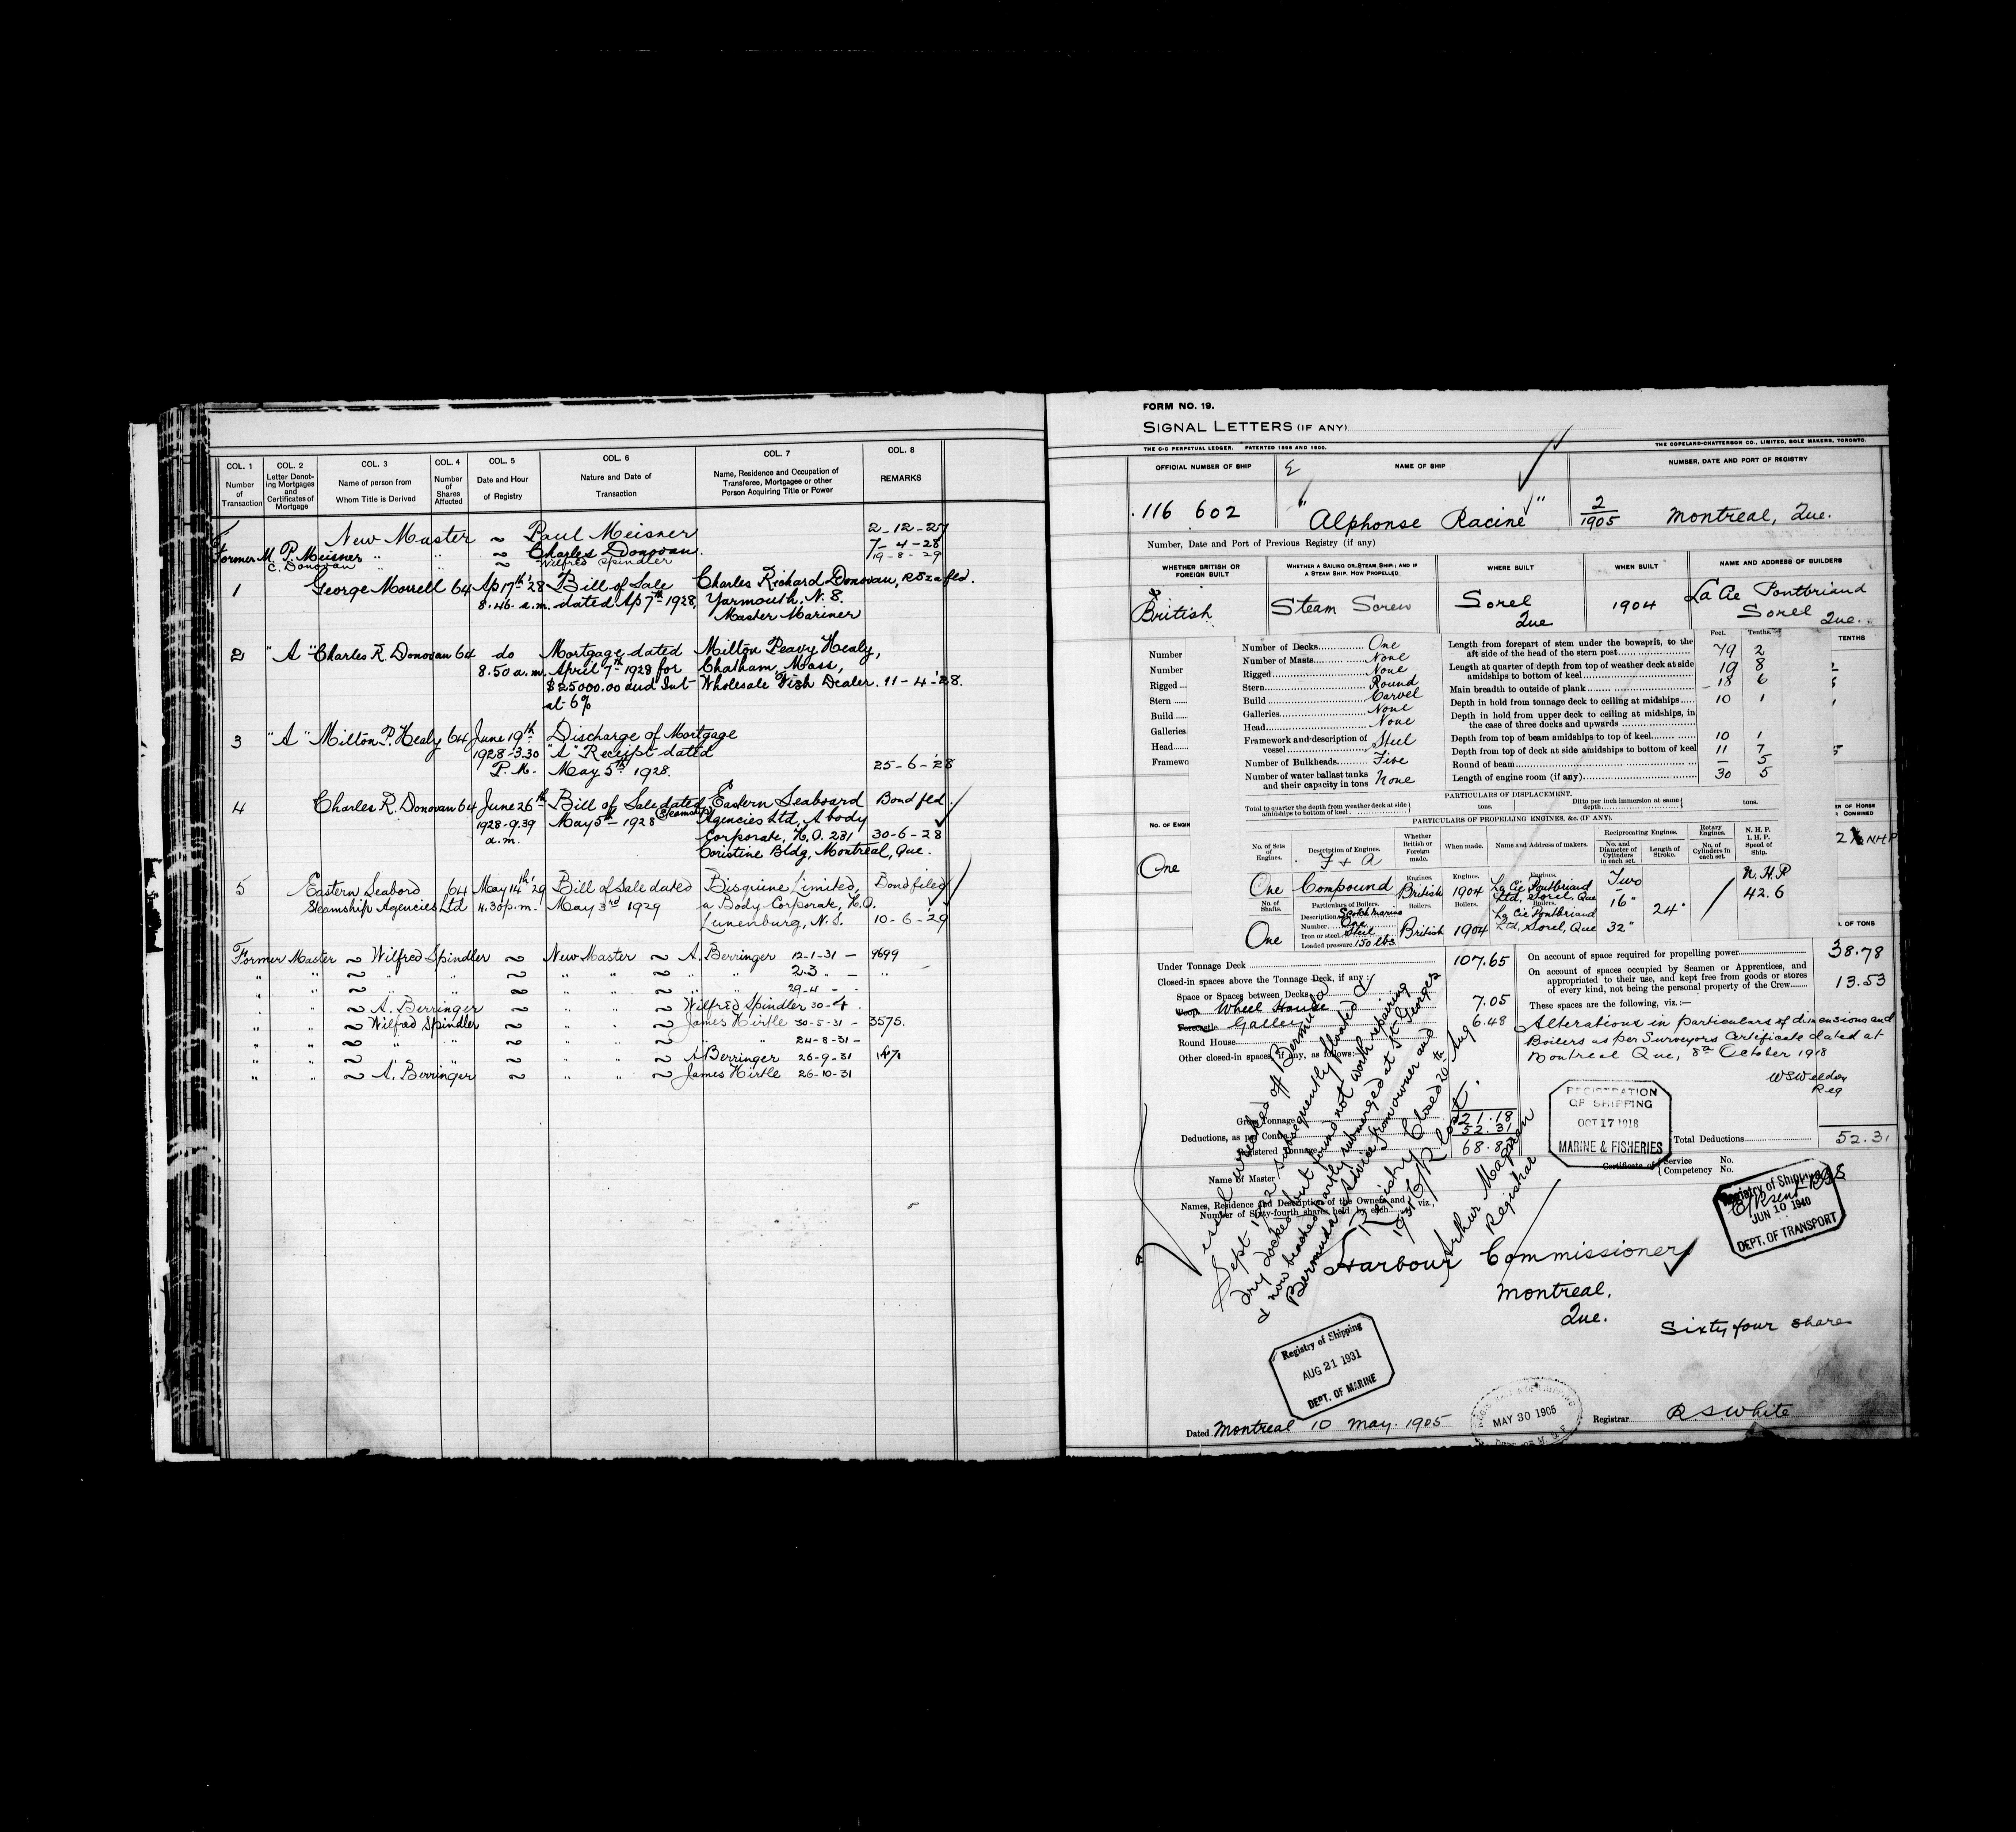 COL. 1 Number of Transaction
COL. 2 Letter Denoting Mortgages and Certificates of Mortgage
COL. 3 Name of person from Whom Title is Derived
COL. 4 Number of Shares Affected
COL. 5 Date and Hour of Registry
COL. 6 Nature and Date of Transaction
COL. 7 Name, Residence and Occupation of Transferee, Mortgagee or other Person Acquiring Title or Power
COL. 8 REMARKS
New Master ~ Paul Meisner 2-12-27
Former M. P. Meisner " " ~ Charles Donovan. 7-4-28
C. Donovan " " ~ Wilfred Spindler 19-8-29
1 George Morrell 64 Ap 17th '28 Bill of Sale Charles Richard Donovan,
8.46. a.m. dated Ap 7th 1928, Yarmouth, N.S.
Master Mariner
2 "A" Charles R. Donovan 64 do Mortgage dated Milton Peavy Healy,
8.50 a.m. April 7th 1928 for Chatham, Mass,
$25000.00 and Int Wholesale Fish Dealer. 11-4-'28.
at 6%
3 "A" Milton P. Healy 64 June 19th Discharge of Mortgage
1928-3.30 "A" Receipt dated
P.M. May 5th 1928. 25-6-'28
4 Charles R. Donovan 64 June 26th Bill of Sale dated Eastern Seaboard Bond fld.
1928-9.39 May 5th 1928 Steamship Agencies Ltd, A body
a.m. Corporate, H.O. 231 30-6-28
Coristine Bldg, Montreal, Que.
5 Eastern Seabord 64 May 14th '29 Bill of Sale dated Bisquine Limited, Bond filed
Steamship Agencies Ltd 4.30 p.m. May 3rd 1929 a Body Corporate, H.O.
Lunenburg, N.S. 10-6-'29
Former Master ~ Wilfred Spindler ~ New Master ~ A. Berringer 12-1-31 - 9699
" " ~ " " ~ " " ~ " " 2-3 " - "
" " ~ " " ~ " " ~ " " 29-4 - "
" " ~ A. Berringer ~ " " ~ Wilfred Spindler 30-4
" " ~ Wilfred Spindler ~ " " ~ James Hirtle 30-5-31 - 3575.
" " ~ " " ~ " " ~ " " 24-8-31 -
" " ~ " " ~ " " ~ A Berringer 26-9-31
" " ~ A. Berringer ~ " " ~ James Hirtle 26-10-31
FORM NO. 19.
SIGNAL LETTERS (IF ANY)
THE C-C PERPETUAL LEDGER. PATENTED 1898 AND 1900.
THE COPELAND-CHATTERSON CO., LIMITED, SOLE MAKERS, TORONTO.
OFFICIAL NUMBER OF SHIP
NAME OF SHIP
NUMBER, DATE AND PORT OF REGISTRY
116 602
"Alphonse Racine"
2/1905 Montreal, Que.
Number, Date and Port of Previous Registry (if any)
WHETHER BRITISH OR FOREIGN BUILT
WHETHER A SAILING OR STEAM SHIP; AND IF A STEAM SHIP, HOW PROPELLED
WHERE BUILT
WHEN BUILT
NAME AND ADDRESS OF BUILDERS
British
Steam Screw
Sorel Que
1904
La Cie Pontbriand
Sorel Que.
Number
Number
Rigged
Stern
Build
Galleries
Head
Framewo
NO. OF ENGIN
One
TENTHS
Number of Decks One
Number of Masts None
Rigged None
Stern Round
Build Carvel
Galleries None
Head None
Framework and description of vessel Steel
Number of Bulkheads Five
Number of water ballast tanks and their capacity in tons None
Feet. Tenths.
Length from forepart of stem under the bowsprit, to the aft side of the head of the stern post 79 2
Length at quarter of depth from top of weather deck at side amidships to bottom of keel 19 8
Main breadth to outside of plank 18 6
Depth in hold from tonnage deck to ceiling at midships 10 1
Depth in hold from upper deck to ceiling at midships, in the case of three decks and upwards
Depth from top of beam amidships to top of keel 10 1
Depth from top of deck at side amidships to bottom of keel 11 7
Round of beam — 5
Length of engine room (if any) 30 5
PARTICULARS OF DISPLACEMENT.
Total to quarter the depth from weather deck at side amidships to bottom of keel tons.
Ditto per inch immersion at same depth tons.
PARTICULARS OF PROPELLING ENGINES, &c. (IF ANY).
No. of Sets of Engines.
Description of Engines.
Whether British or Foreign made.
When made.
Name and Address of makers.
Reciprocating Engines.
No. and Diameter of Cylinders in each set.
Length of Stroke.
Rotary Engines.
No. of Cylinders in each set.
N. H. P.
I. H. P.
Speed of Ship.
F & A
One Compound
Engines. British
Engines. 1904
Engines. La Cie Pontbriand
Ltd, Sorel, Que
Two
16"
32"
24"
N.H.P
42.6
No. of Shafts.
One
Particulars of Boilers.
Description Scotch Marine
Number One
Iron or steel Steel
Loaded pressure 150 lbs
Boilers. British
Boilers. 1904
Boilers. La Cie Pontbriand
Ltd, Sorel, Que
Under Tonnage Deck 107.65
Closed-in spaces above the Tonnage Deck, if any:
Space or Spaces between Decks
Poop Wheel House 7.05
Forecastle Galley 6.48
Round House
Other closed-in spaces, if any, as follows:
Gross Tonnage 121.18
Deductions, as per Contra 52.31
Registered Tonnage 68.87
On account of space required for propelling power 38.78
On account of spaces occupied by Seamen or Apprentices, and appropriated to their use, and kept free from goods or stores of every kind, not being the personal property of the Crew 13.53
These spaces are the following, viz.:—
Alterations in particulars of dimensions and
Boilers as per Surveyors Certificate dated at
Montreal Que, 8th October 1918
WSWeldon
Reg
REGISTRATION OF SHIPPING
OCT 17 1918
MARINE & FISHERIES
Total Deductions 52.31
Name of Master
Certificate of Service No.
Competency No.
Names, Residence and Description of the Owners, and Number of Sixty-fourth shares held by each viz.,
Vessel wrecked off Bermuda
Sept 1932 subsequently floated &
dry docked but found not worth repairing
& now beached partly submerged at St Georges
Bermuda. Advice from owner and
Registry Closed 20th Aug
193 C/R lost.
Arthur
Registrar
Harbour Commissioners
Montreal.
Que.
Sixty four shares
Registry of Shipping
JUN 10 1940
DEPT. OF TRANSPORT
Registry of Shipping
AUG 21 1931
DEPT. OF MARINE
MAY 30 1905
Dated Montreal 10 May. 1905
Registrar R.S. White